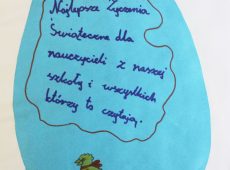 Najlepsze Życzenia
Świąteczne dla
nauczycieli z naszej
szkoły i wszystkich
którzy to czytają.